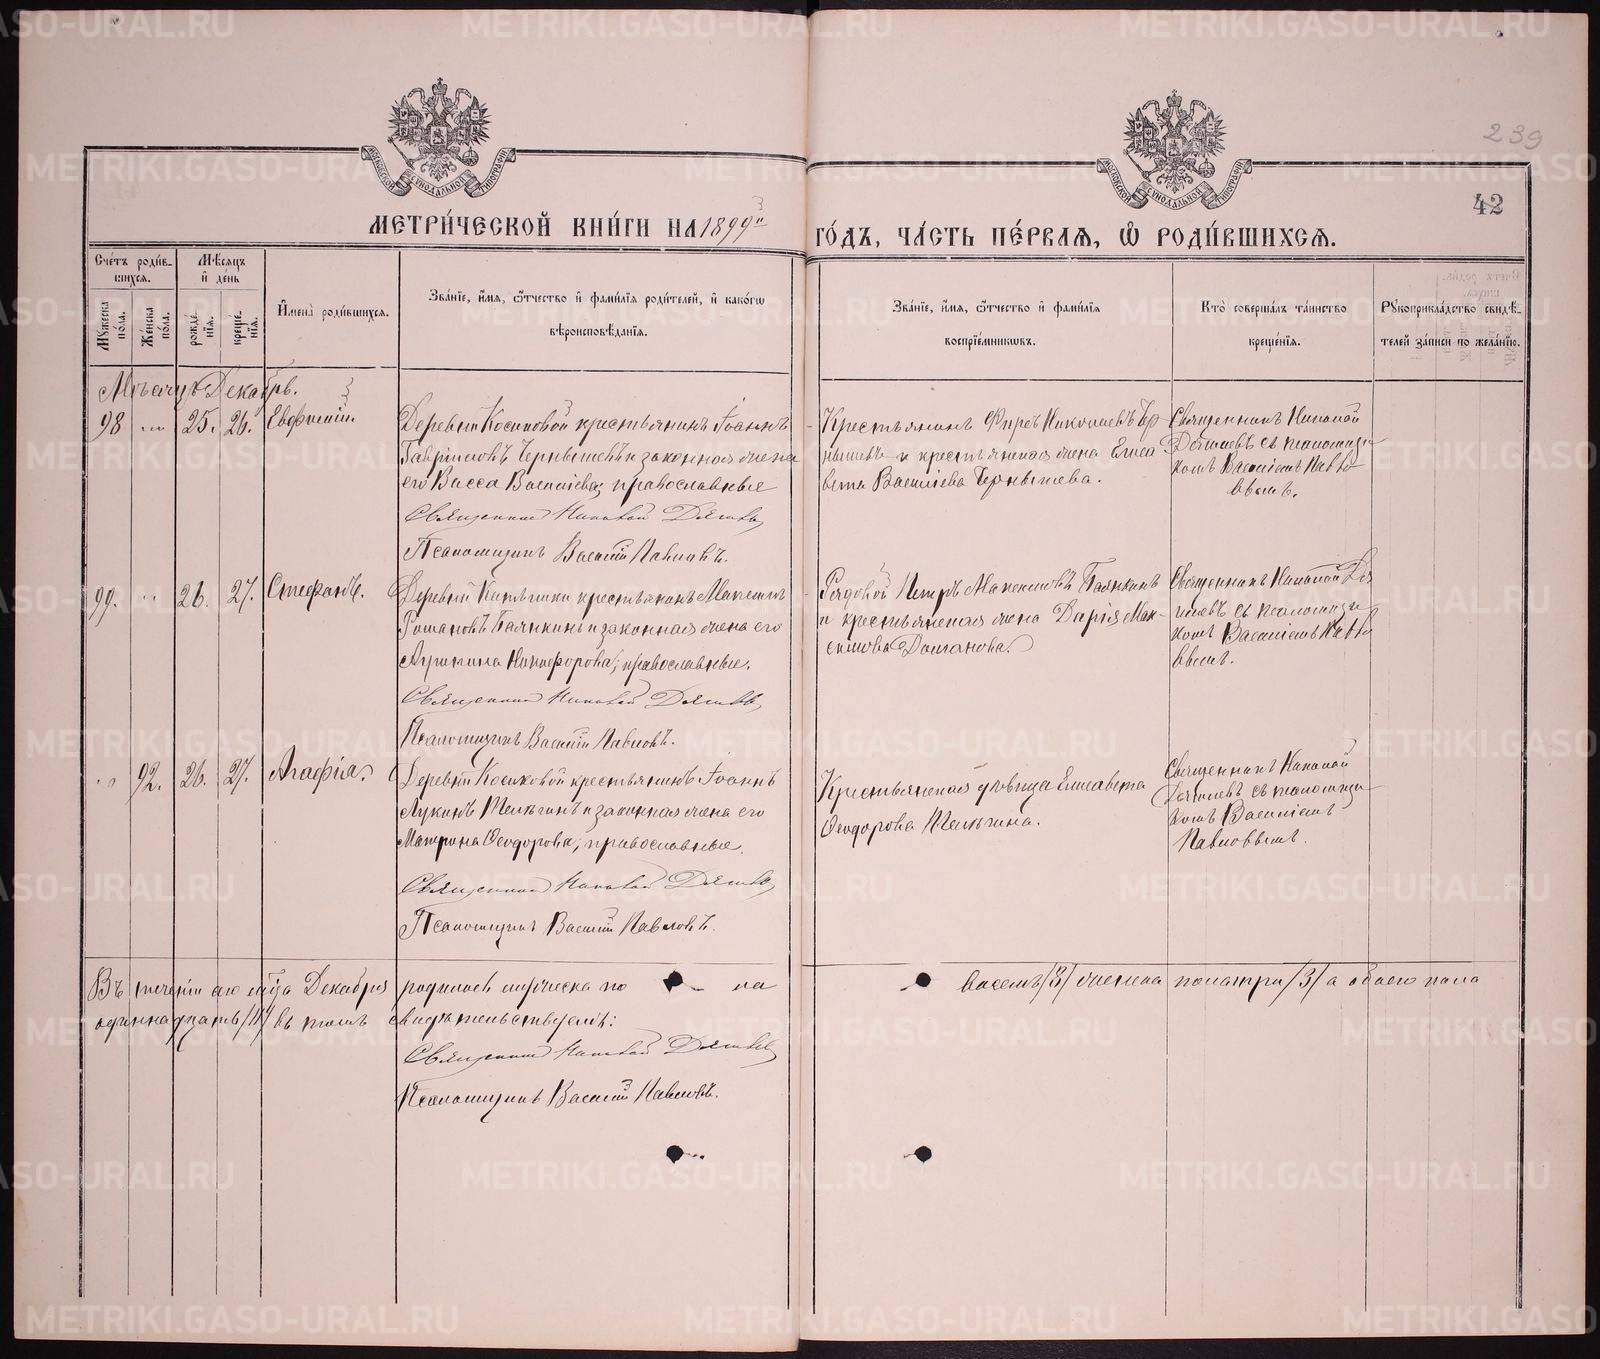 239
42
МЕТРИ́ЧЕСКОЙ КНИ́ГИ НА 1899й ГО́ДЪ, ЧА́СТЬ ПЕ́РВАЯ, Ѽ РОДИ́ВШИХСЯ.
Сче́тъ роди́вшихся.
Му́жеска по́ла.
Же́нска по́ла.
Мѣ́сяцъ и де́нь
рожде́нїя.
креще́нїя.
И҆мена̀ роди́вшихся.
Зва́нїе, и҆́мя, ѻ҆́тчество и҆ фами́лїя роди́телей, и҆ како́гѡ
вѣроисповѣ́данїя.
Зва́нїе, и҆́мя, ѻ҆́тчество и҆ фами́лїя
воспрїе́мникѡвъ.
Кто̀ соверша́лъ та́инство
креще́нїя.
Рꙋкоприкла́дство свидѣ́-
телей за́писи по жела́нїю.
Мѣсяцъ Декабрь.
98 25. 26. Евфимій.
Деревни Косиковой крестьянинъ Іоаннъ
Гавріиловъ Чернышевъ и законная жена
его Васса Васильева, православные
Священникъ Николай
Псаломщикъ Василій Павловъ.
Крестьянинъ Николаевъ Чер-
нышевъ и крестьянская жена Елиса
вета Васильева Чернышева.
Священникъ Николай
съ псаломщи
комъ Василіемъ Павло
вымъ.
99. 26. 27. Стефанъ.
Деревни крестьянинъ Максимъ
Романовъ Баянкинъ и законная жена его
Никифорова, православные.
Священникъ Николай
Псаломщикъ Василій Павловъ.
Рядовой Петръ Максимовъ Баянкинъ
и крестьянская жена Дарія Мак-
симова Долганова.
Священникъ Николай
съ псаломщи
комъ Василіемъ Павло
вымъ.
92. 26. 27. Агафія.
Деревни Косиковой крестьянинъ Іоаннъ
Лукинъ Телыгинъ и законная жена его
Матрона Ѳеодорова, православные.
Священникъ Николай
Псаломщикъ Василій Павловъ.
Крестьянская дѣвица Елисавета
Ѳеодорова Телыгина.
Священникъ Николай
съ псаломщи
комъ Василіемъ
Павловымъ.
Въ теченіи сего м-ца Декабря родилось мужеска пола восемь /8/ женска пола три /3/ а обоего пола
одиннадцать /11/ въ томъ свидѣтельствуемъ:
Священникъ Николай
Псаломщикъ Василій Павловъ.
METRIKI.GASO-URAL.RU